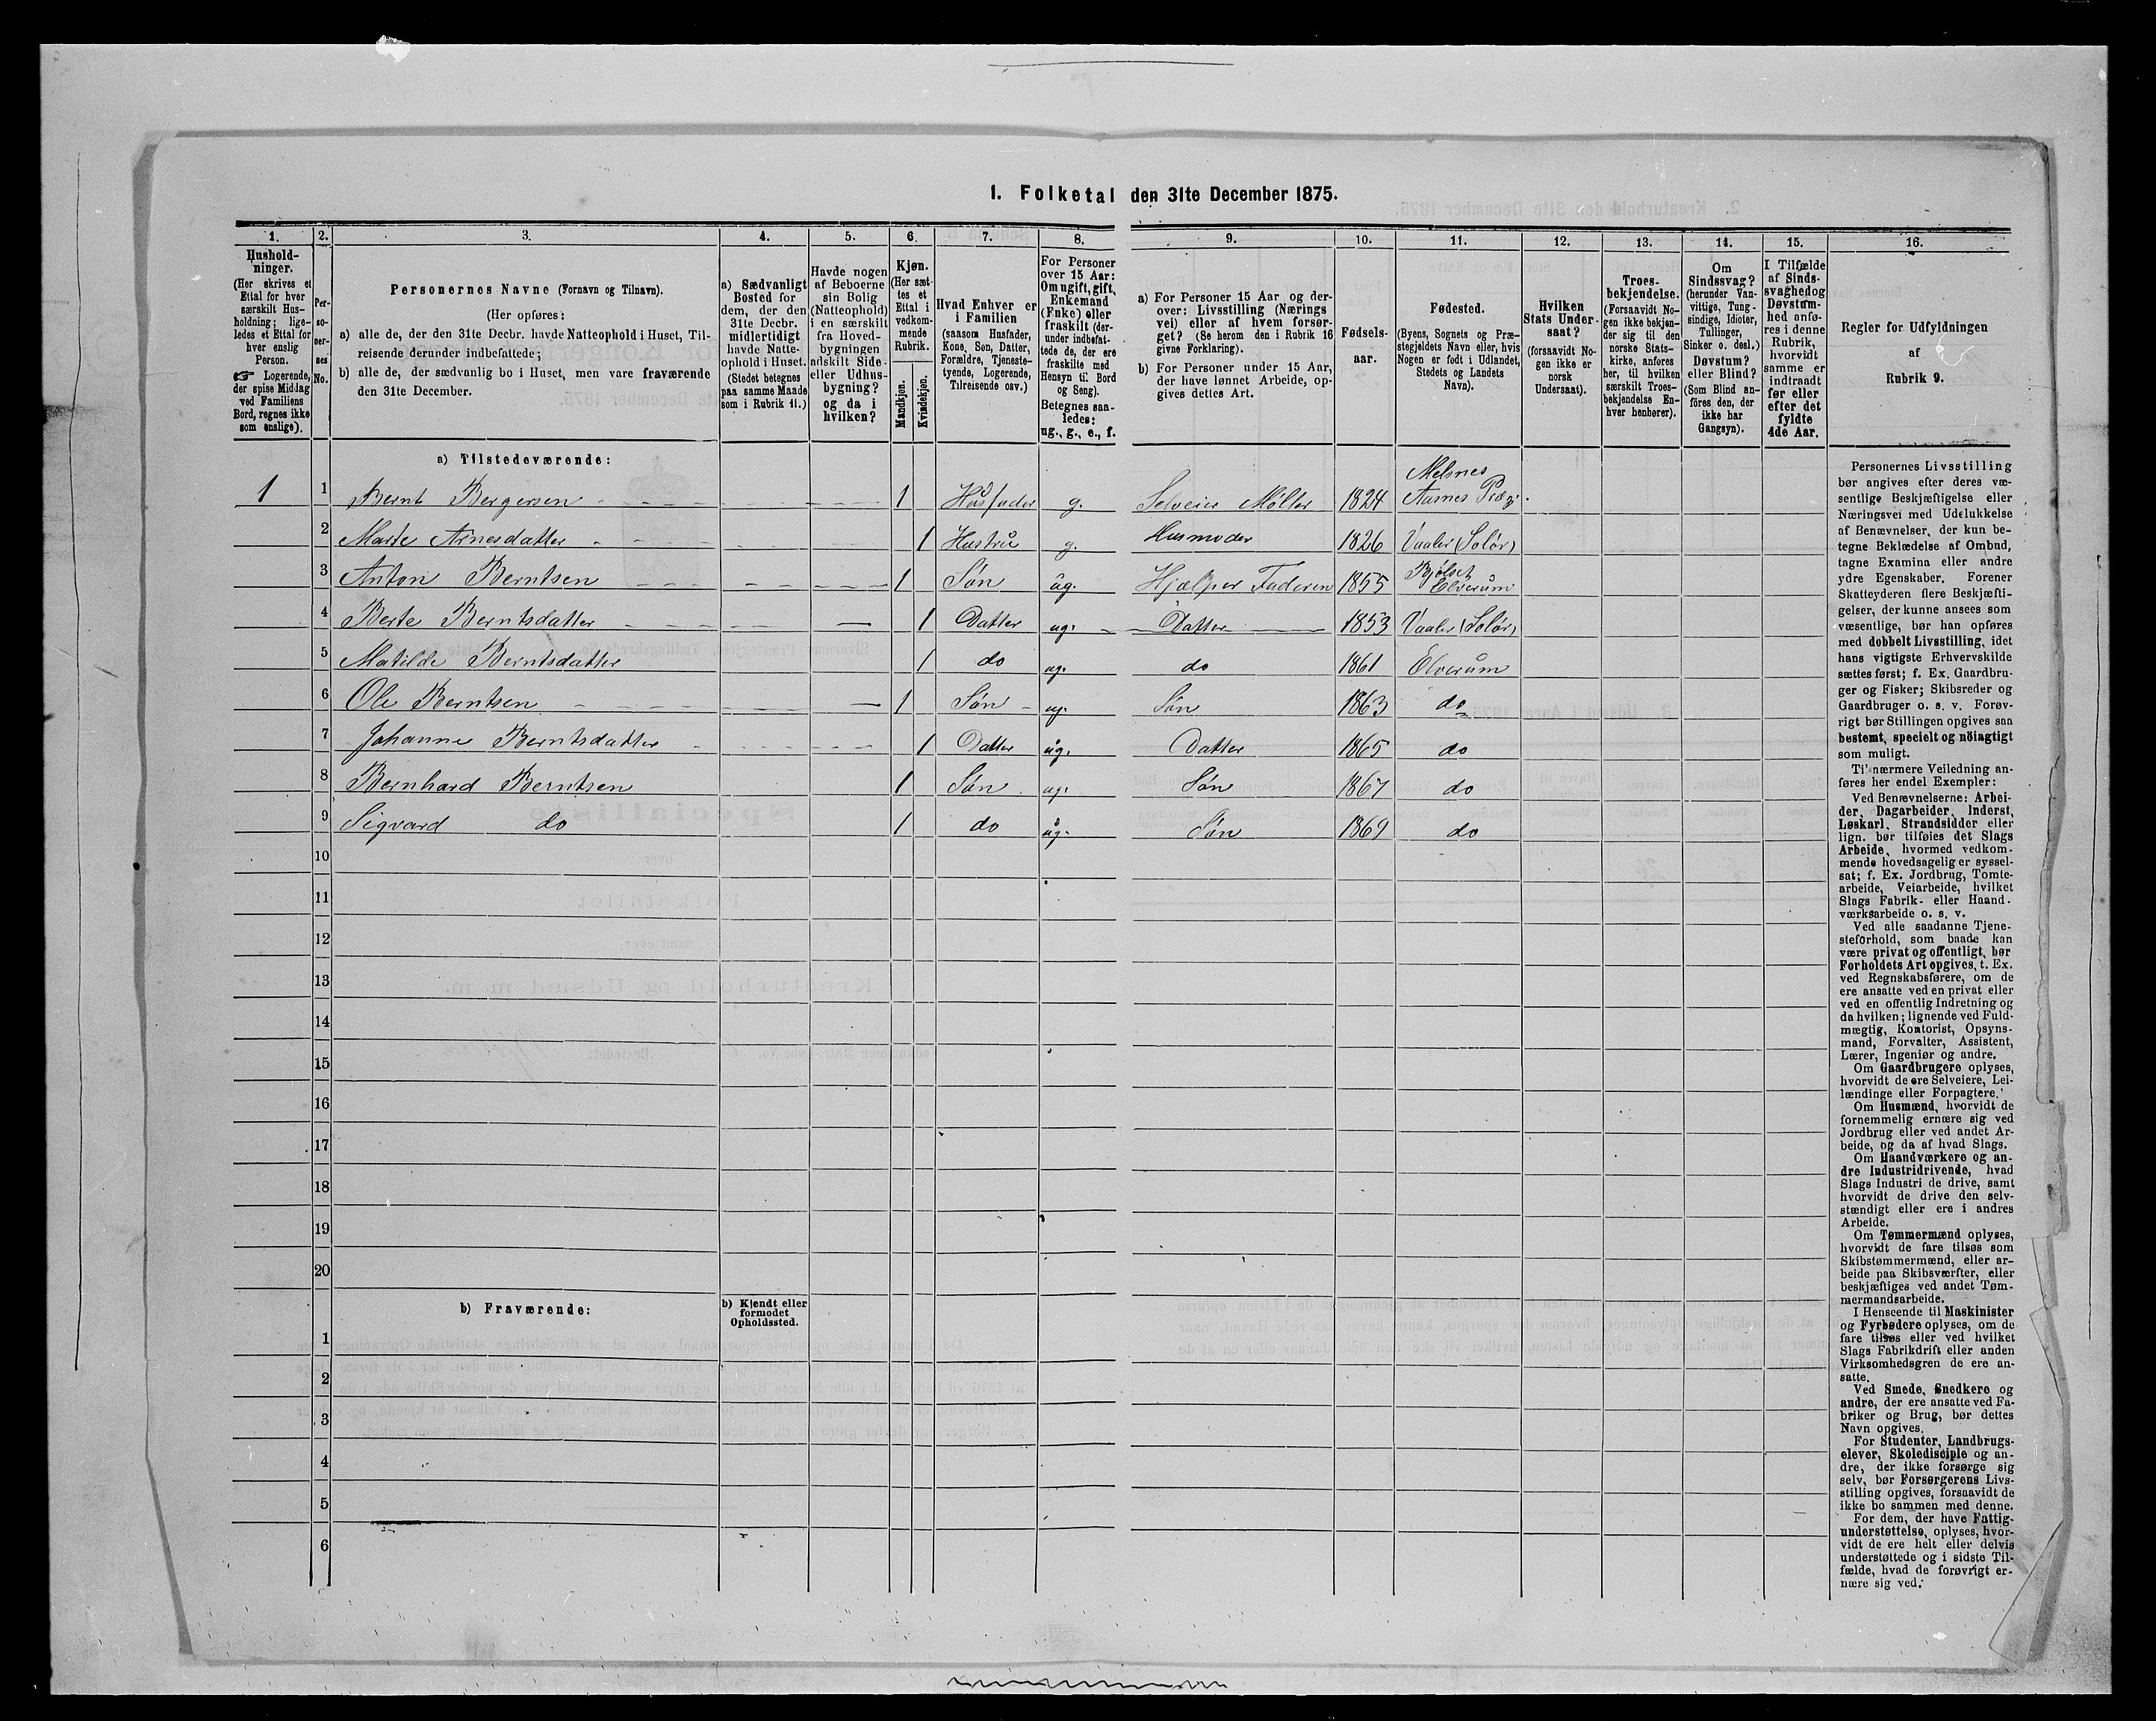 1. Folketal den 31te December 1875.
1.
Hushold-
ninger.
(Her skrives et
Ettal for hver
særskilt Hus-
holdning; lige-
ledes et Ettal for
hver enslig
Person.
☞ Logerende,
der spise Middag
ved Familiens
Bord, regnes ikke
som enslige).
2.
Per-
so-
ner-
nes
No.
3.
Personernes Navne (Fornavn og Tilnavn).
(Her opføres:
a) alle de, der den 31te Decbr. havde Natteophold i Huset, Til-
reisende derunder indbefattede;
b) alle de, der sædvanlig bo i Huset, men vare fraværende
den 31te December.
4.
a) Sædvanligt
Bosted for
dem, der den
31te Decbr.
midlertidigt
havde Natte-
ophold i Huset.
(Stedet betegnes
paa samme Maade
som i Rubrik 11.)
5.
Havde nogen
af Beboerne
sin Bolig
(Natteophold)
i en særskilt
fra Hoved-
bygningen
adskilt Side-
eller Udhus-
bygning?
og da i
hvilken?
6.
Kjøn.
(Her sæt-
tes et
Ettal i
vedkom-
mende
Rubrik.
Mandkjøn.
Kvindekjøn.
7.
Hvad Enhver er
i Familien
(saasom Husfader,
Kone, Søn, Datter,
Forældre, Tjeneste-
tyende, Logerende,
Tilreisende osv.)
8.
For Personer
over 15 Aar:
Om ugift, gift,
Enkemand
(Enke) eller
fraskilt (der-
under indbefat-
tede de, der ere
fraskilte med
Hensyn til Bord
og Seng).
Betegnes saa-
ledes:
ug., g., e., f.
9.
a) For Personer 15 Aar og der-
over: Livsstilling (Nærings
vei) eller af hvem forsør-
get? (Se herom den i Rubrik 16
givne Forklaring).
b) For Personer under 15 Aar,
der have lønnet Arbeide, op-
gives dettes Art.
10.
Fødsels-
aar.
11.
Fødested.
(Byens, Sognets og Præ-
stegjeldets Navn eller, hvis
Nogen er født i Udlandet,
Stedets og Landets
Navn).
12.
Hvilken
Stats Under-
saat?
(forsaavidt No-
gen ikke er
norsk
Undersaat).
13.
Troes-
bekjendelse.
(Forsaavidt No-
gen ikke bekjen-
der sig til den
norske Stats-
kirke, anføres
her, til hvilken
særskilt Troes-
bekjendelse En-
hver henhører).
14.
Om
Sindssvag?
(herunder Van-
vittige, Tung-
sindige, Idioter,
Tullinger,
Sinker o. desl.)
Døvstum?
eller Blind?
(Som Blind an-
føres den, der
ikke har
Gangsyn).
15.
I Tilfælde
af Sinds-
svaghed og
Døvstum-
hed anfø-
res i denne
Rubrik,
hvorvidt
samme er
indtraadt
før eller
efter det
fyldte
4de Aar.
16.
Regler for Udfyldningen
af
Rubrik 9.
a) Tilstedeværende:
1 1 Bernt Bergersen 1 Husfader g. Selveier Møller 1824 Aasnes Præg.
2 Marte Arnesdatter 1 Hustru g. Husmoder 1826 Vaaler (Solør)
3 Anton Berntsen 1 Søn ug. Hjælper Faderen 1855 Elverum
4 Berte Berntsdatter 1 Datter ug. Datter 1853 Vaaler (Solør)
5 Matilde Berntsdatter 1 do ug. do 1861 Elverum
6 Ole Berntsen 1 Søn ug. Søn 1863 do
7 Johanne Berntsdatter 1 Datter ug. Datter 1865 do
8 Bernhard Berntsen 1 Søn ug. Søn 1867 do
9 Sigvard do 1 do ug. Søn 1869 do
10
11
12
13
14
15
16
17
18
19
20
b) Fraværende:
b) Kjendt eller
formodet
Opholdssted.
1
2
3
4
5
6
Personernes Livsstilling
bør angives efter deres væ-
sentlige Beskjæftigelse eller
Næringsvei med Udelukkelse
af Benævnelser, der kun be-
tegne Beklædelse af Ombud,
tagne Examina eller andre
ydre Egenskaber. Forener
Skatteyderen flere Beskjæfti-
gelser, der kunne ansees som
væsentlige, bør han opføres
med dobbelt Livsstilling, idet
hans vigtigste Erhvervskilde
sættes først; f. Ex. Gaardbru-
ger og Fisker; Skibsreder og
Gaardbruger o. s. v. Forøv-
rigt bør Stillingen opgives saa
bestemt, specielt og nöiagtigt
som muligt.
Til nærmere Veiledning an-
føres her endel Exempler:
Ved Benævnelserne: Arbei-
der, Dagarbeider, Inderst,
Løskarl, Strandsidder eller
lign. bør tilføies det Slags
Arbeide, hvormed vedkom-
mende hovedsagelig er syssel-
sat; f. Ex. Jordbrug, Tomte-
arbeide, Veiarbeide, hvilket
Slags Fabrik- eller Haand-
værksarbeide o. s. v.
Ved alle saadanne Tjene-
steforhold, som baade kan
være privat og offentligt, bør
Forholdets Art opgives, t. Ex.
ved Regnskabsførere, om de
ere ansatte ved en privat eller
ved en offentlig Indretning og
da hvilken; lignende ved Fuld-
mægtig, Kontorist, Opsyns-
mand, Forvalter, Assistent,
Lærer, Ingeniør og andre.
Om Gaardbrugere oplyses,
hvorvidt de ere Selveiere, Lei-
lændinge eller Forpagtere.
Om Husmænd, hvorvidt de
fornemmelig ernære sig ved
Jordbrug eller ved andet Ar-
beide, og da af hvad Slags.
Om Haandværkere og an-
dre Industridrivende, hvad
Slags Industri de drive, samt
hvorvidt de drive den selv-
stændigt eller ere i andres
Arbeide.
Om Tømmermænd oplyses,
hvorvidt de fare tilsøs som
Skibstømmermænd, eller ar-
beide paa Skibsværfter, eller
beskjæftiges ved andet Tøm-
mermandsarbeide.
I Henseende til Maskinister
og Fyrbødere oplyses, om de
fare tilsøs eller ved hvilket
Slags Fabrikdrift eller anden
Virksomhedsgren de ere an-
satte.
Ved Smede, Snedkere og
andre, der ere ansatte ved Fa-
briker og Brug, bør dettes
Navn opgives.
For Studenter, Landbrugs-
elever, Skoledisciple og an-
dre, der ikke forsørge sig
selv, bør Forsørgerens Livs-
stilling opgives, forsaavidt de
ikke bo sammen med denne.
For dem, der have Fattig-
understøttelse, oplyses, hvor-
vidt de ere helt eller delvis
understøttede og i sidste Til-
fælde, hvad de forøvrigt er-
nære sig ved.